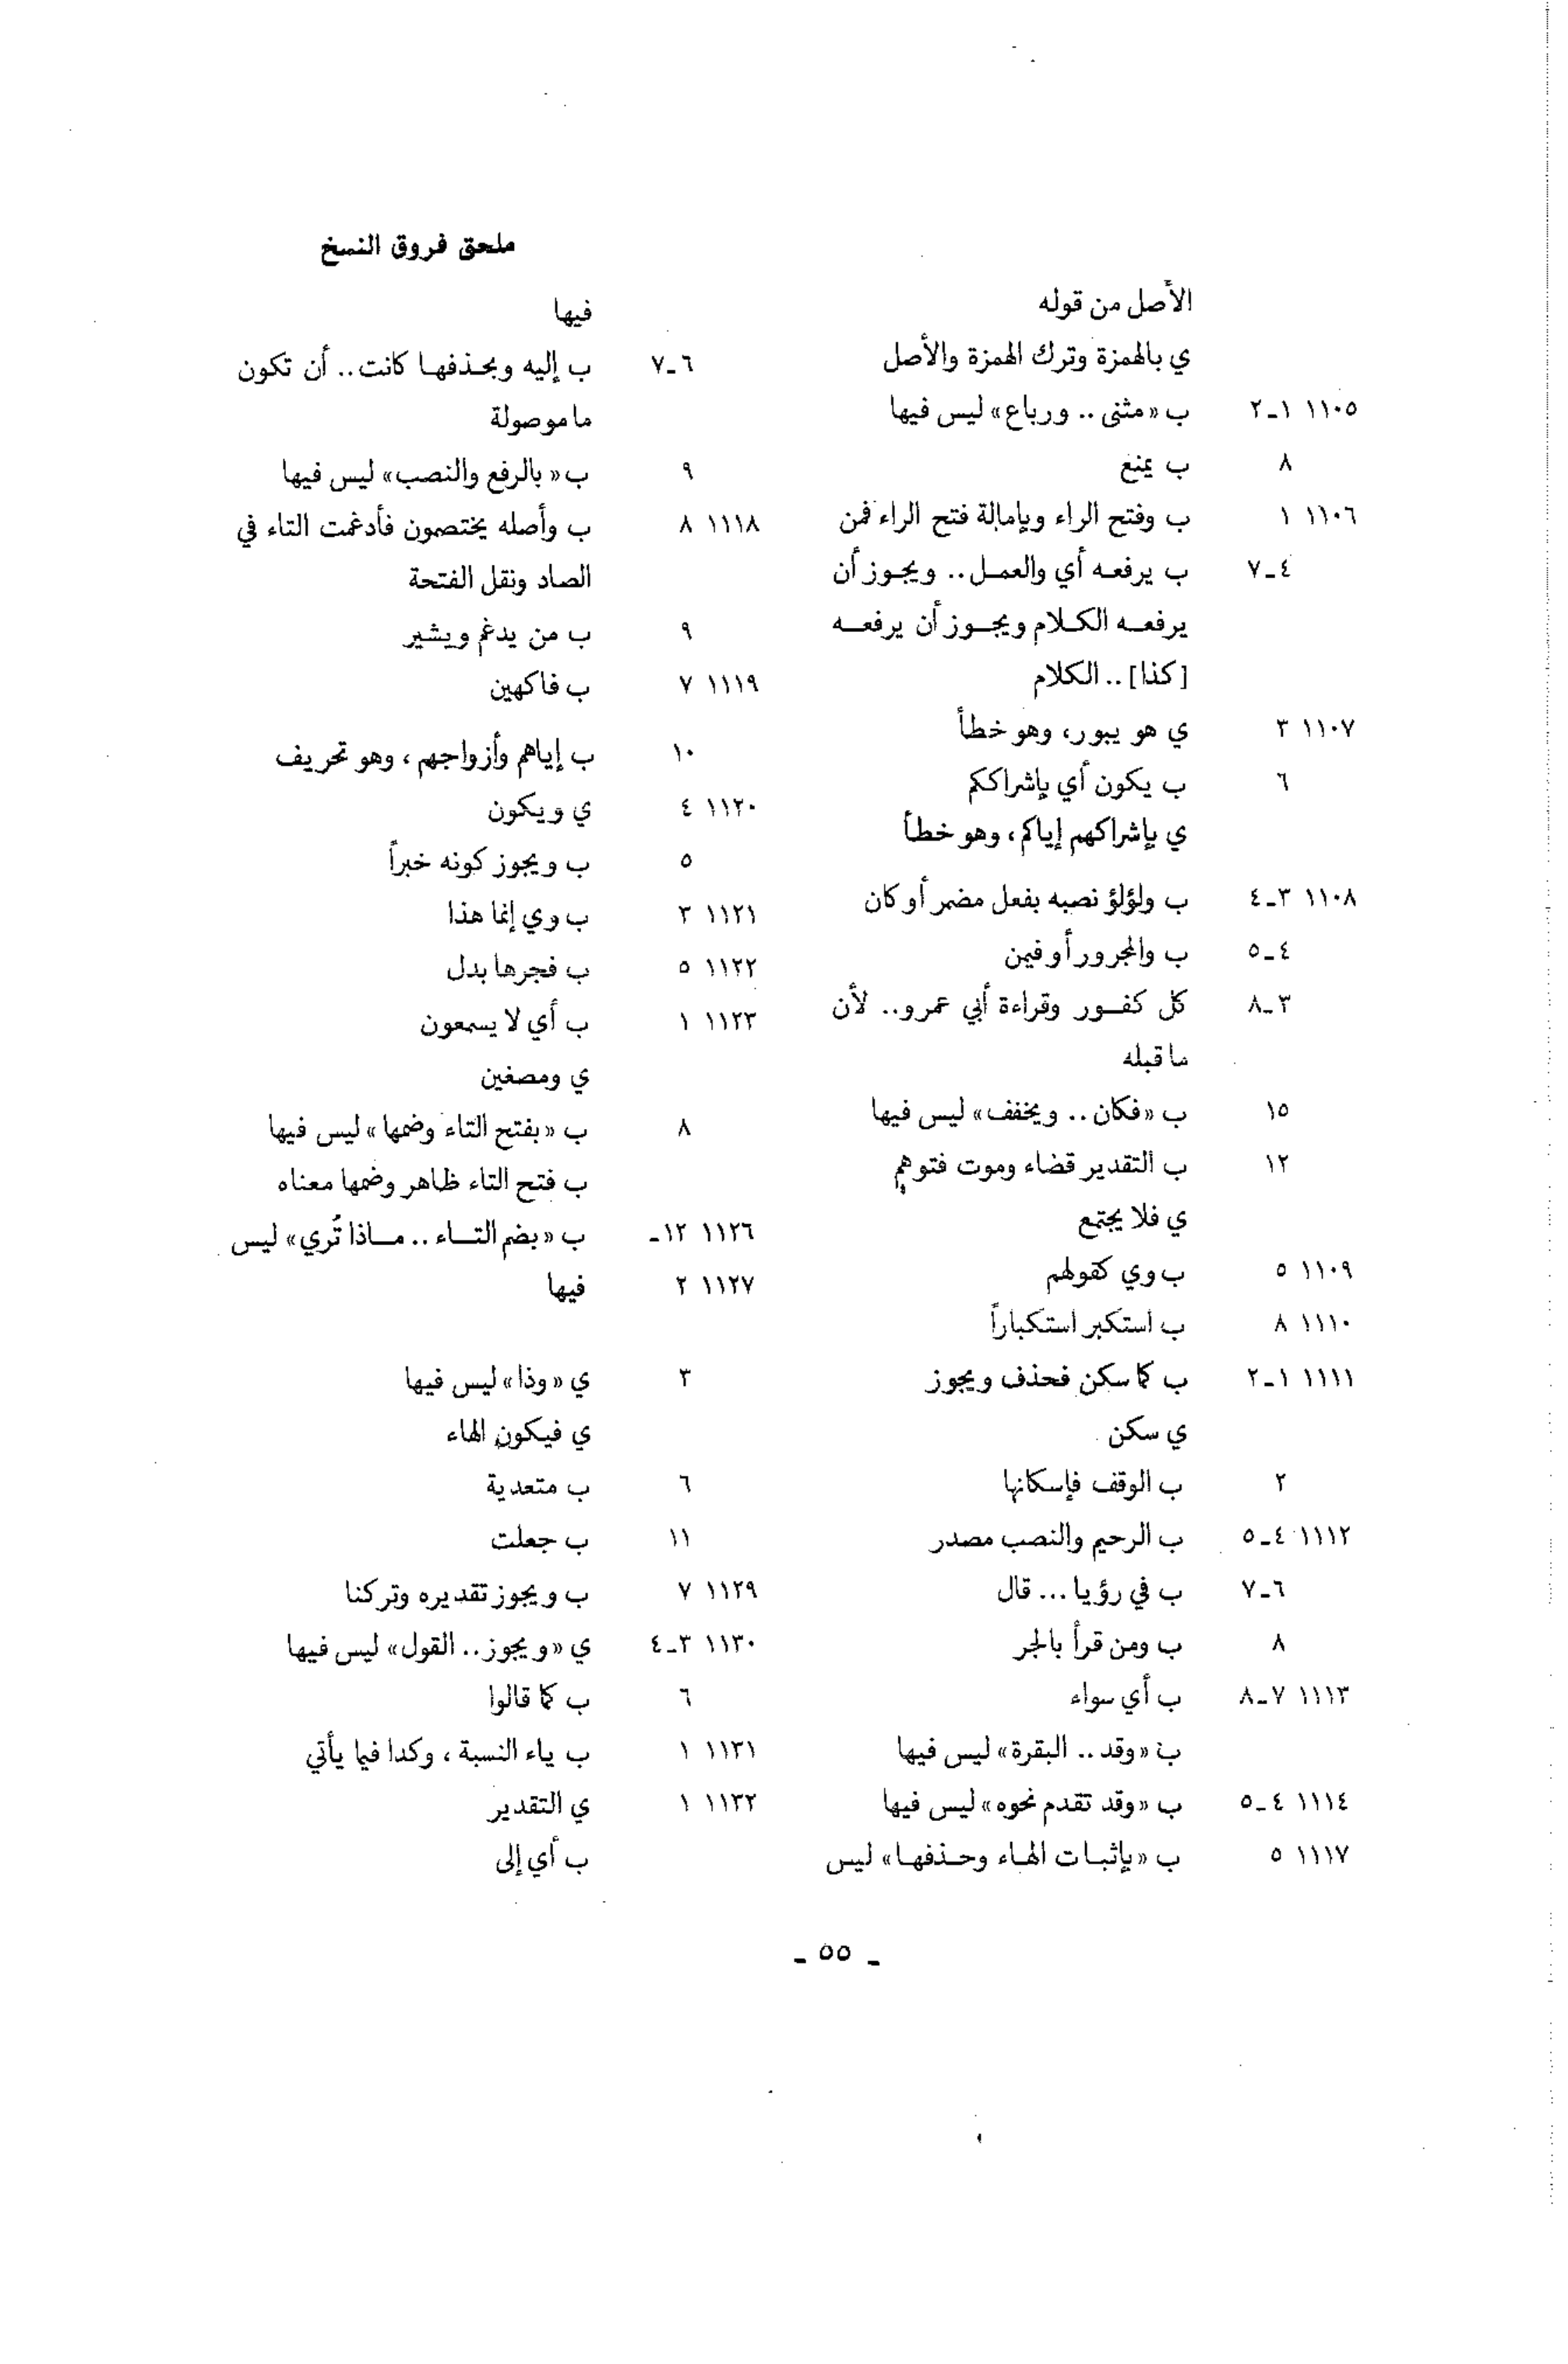 ملحق فروق النسخ
الأصل من قوله
ي بالهمزة وترك الهمزة والأصل
١١٠٥ ١ـ٢ ب «مثنى .. ورباع» ليس فيها
٨ ب يمنع
١١٠٦ ١ ب وفتح الراء وبإمالة فتح الراء فمن
٤ـ٧ ب يرفعه أي والعمل .. ويجوز أن
يرفعه الكلام ويجوز أن يرفعه
[كذا] .. الكلام
١١٠٧ ٣ ي هو يبور، وهو خطأ
٦ ب يكون أي بإشراككم
ي بإشراكهم إياكم، وهو خطأ
١١٠٨ ٣ـ٤ ب ولؤلؤ نصبه بفعل مضمر أو كان
٤ـ٥ ب والمجرور أو فيمن
٣ـ٨ كل كفور وقراءة أبي عمرو .. لأن
ما قبله
١٥ ب «فكان .. ويخفف» ليس فيها
١٢ ب التقدير قضاء وموت فتوهم
ي فلا يجتمع
١١٠٩ ٥ ب وي كقولهم
١١١٠ ٨ ب استكبر استكباراً
١١١١ ١ـ٢ ب كما سكن فحذف ويجوز
ي سكن
٢ ب الوقف فإسكانها
١١١٢ ٤ـ٥ ب الرحيم والنصب مصدر
٦ـ٧ ب في رؤيا ... قال
٨ ب ومن قرأ بالجر
١١١٣ ٧ـ٨ ب أي سواء
ب «وقد .. البقرة» ليس فيها
١١١٤ ٤ـ٥ ب «وقد تقدم نحوه» ليس فيها
١١١٧ ٥ ب «بإثبات الهاء وحذفها» ليس
فيها
٦ـ٧ ب إليه وبحذفها كانت .. أن تكون
ما موصولة
٩ ب «بالرفع والنصب» ليس فيها
١١١٨ ٨ ب وأصله يختصون فأدغمت التاء في
الصاد ونقل الفتحة
٩ ب من يدغم ويشير
١١١٩ ٧ ب فاكهين
١٠ ب إياهم وأزواجهم، وهو تحريف
١١٢٠ ٤ ي ويكون
٥ ب ويجوز كونه خبراً
١١٢١ ٣ ب وي إنما هذا
١١٢٢ ٥ ب فجرها بدل
١١٢٣ ١ ب أي لا يسمعون
ي ومصغين
٨ ب «بفتح التاء وضمها» ليس فيها
ب فتح التاء ظاهر وضمها معناه
١١٢٦ ١٢ـ ب «بضم التاء .. ماذا تُري» ليس
١١٢٧ ٢ فيها
٣ ي «وذا» ليس فيها
ي فيكون الهاء
٦ ب متعدية
١١ ب جعلت
١١٢٩ ٧ ب ويجوز تقديره وتركنا
١١٣٠ ٣ـ٤ ي «ويجوز .. القول» ليس فيها
٦ ب كما قالوا
١١٣١ ١ ب ياء النسبة، وكدا فيما يأتي
١١٣٢ ١ ي التقدير
ب أي إلى
ـ ٥٥ ـ